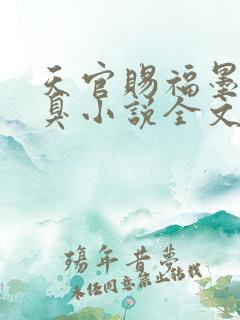 天官赐福墨
真小说全文
殇年昔梦
未经同意禁止转载